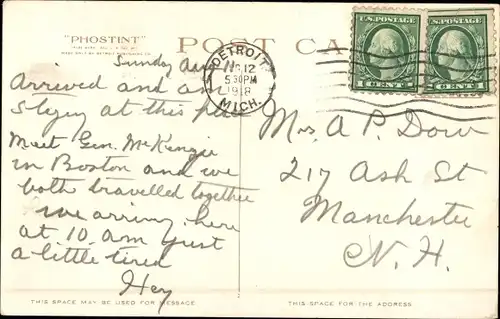 "PHOSTINT"
POST CA
Sunday Aug 11
Arrived and am
staying at this place
Meet Gen. McKenzie
in Boston and we
both travelled together
we arriving here
at 10 am just
a little tired
Hey
DETROIT
12
5 30 PM
1918
MICH.
U.S. POSTAGE
1 CENT 1
U.S. POSTAGE
CENT 1
Mrs A P. Dow
217 Ash St
Manchester
N. H.
THIS SPACE MAY BE USED FOR MESSAGE
THIS SPACE IS FOR THE ADDRESS